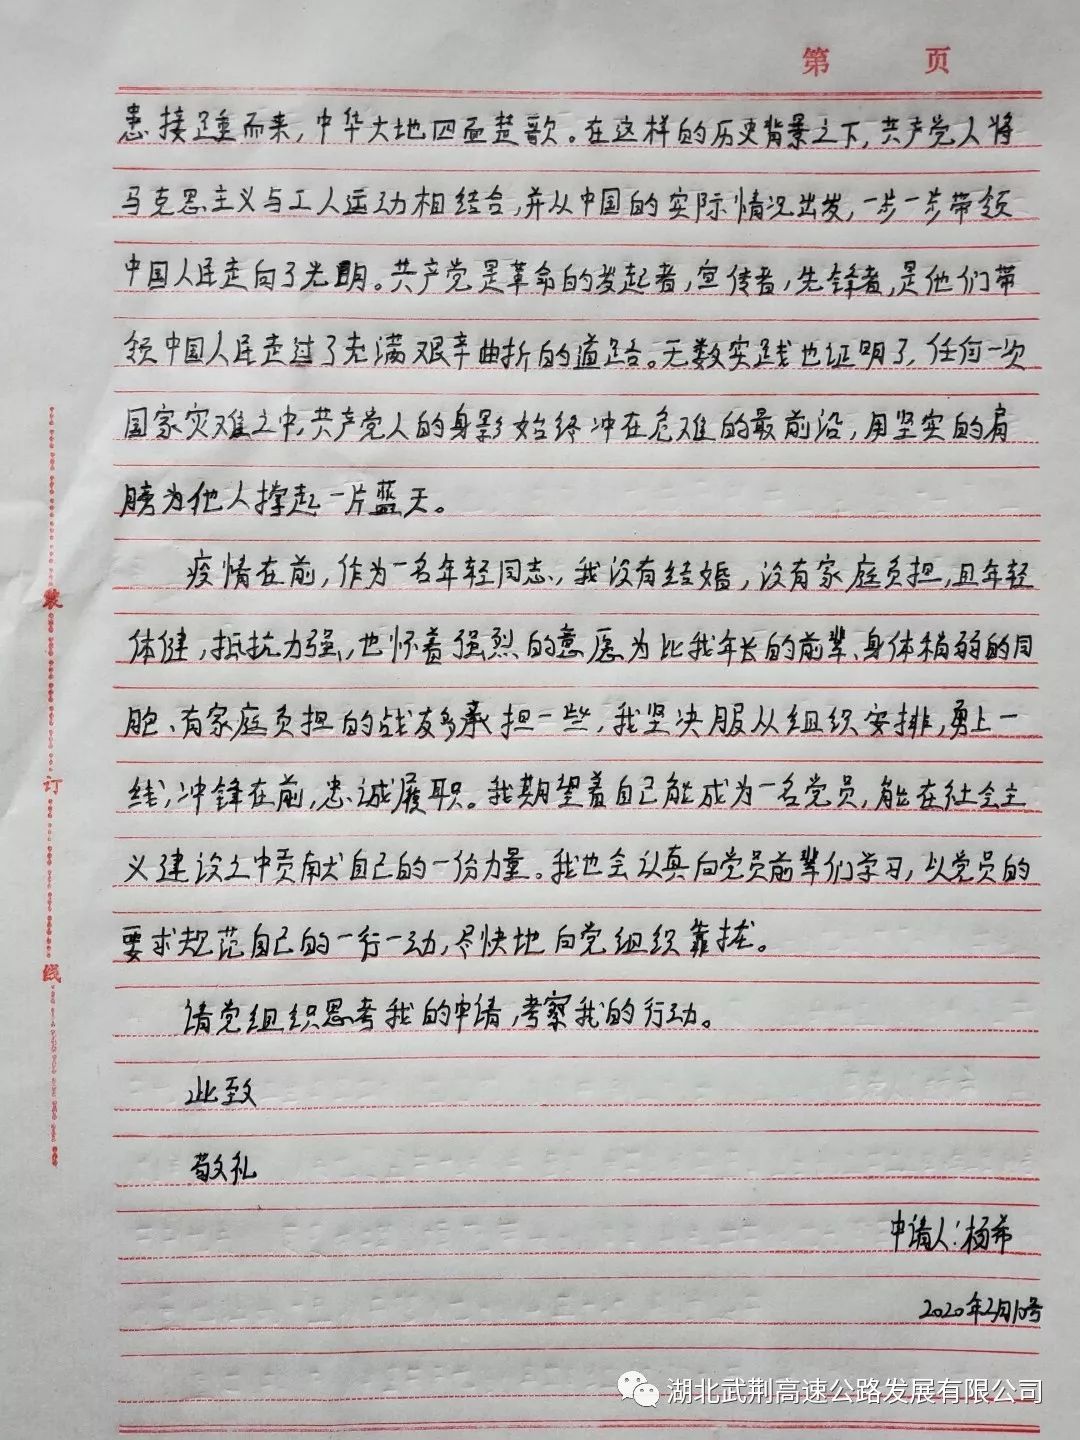 第 页
患接踵而来，中华大地四面楚歌。在这样的历史背景之下，共产党人将
马克思主义与工人运动相结合，并从中国的实际情况出发，一步一步带领
中国人民走向了光明。共产党是革命的发起者，宣传者，先锋者，是他们带
领中国人民走过了充满艰辛曲折的道路。无数实践也证明了，任何一次
国家灾难之中，共产党人的身影始终冲在危难的最前沿，用坚实的肩
膀为他人撑起一片蓝天。
疫情在前，作为一名年轻同志，我没有结婚，没有家庭负担，且年轻
体健，抵抗力强，也怀着强烈的意愿为比我年长的前辈、身体稍弱的同
胞、有家庭负担的战友多承担一些，我坚决服从组织安排，勇上一
线，冲锋在前，忠诚履职。我期望着自己能成为一名党员，能在社会主
义建设工中贡献自己的一份力量。我也会认真向党员前辈们学习，以党员的
要求规范自己的一行一动，尽快地向党组织靠拢。
请党组织思考我的申请，考察我的行动。
此致
敬礼
申请人：杨希
2020年2月10号
装
订
线
湖北武荆高速公路发展有限公司